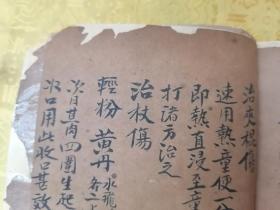 治夾棍傷
速用熱童便一盆
即熱直浸至童
打諸方治之
治杖傷
輕粉 黃丹 水飛 各一
次日其肉四圍生肥
次口用此收口甚效